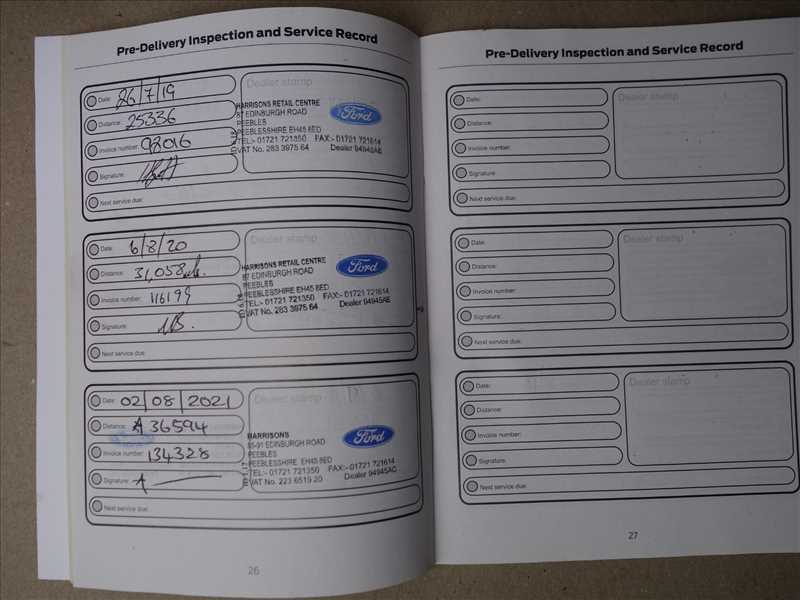 Pre-Delivery Inspection and Service Record
Date: 26/7/19
Distance: 25336
Invoice number: 98016
Signature:
Next service due:
Dealer stamp
HARRISONS RETAIL CENTRE
87 EDINBURGH ROAD
PEEBLES
PEEBLESSHIRE EH45 8ED
TEL:- 01721 721350 FAX:- 01721 721614
VAT No. 283 3975 64 Dealer 94945AE
Ford
Date: 6/8/20
Distance: 31,058 mls.
Invoice number: 116199
Signature:
Next service due:
Dealer stamp
HARRISONS RETAIL CENTRE
87 EDINBURGH ROAD
PEEBLES
PEEBLESSHIRE EH45 8ED
TEL:- 01721 721350 FAX:- 01721 721614
VAT No. 283 3975 64 Dealer 94945AE
Ford
Date: 02/08/2021
Distance: 36594
Invoice number: 134328
Signature:
Next service due:
Dealer stamp
HARRISONS
85-91 EDINBURGH ROAD
PEEBLES
PEEBLESSHIRE EH45 8ED
TEL:- 01721 721350 FAX:- 01721 721614
VAT No. 223 6519 20 Dealer 94945AC
Ford
26
Pre-Delivery Inspection and Service Record
Date:
Distance:
Invoice number:
Signature:
Next service due:
Dealer stamp
Date:
Distance:
Invoice number:
Signature:
Next service due:
Dealer stamp
Date:
Distance:
Invoice number:
Signature:
Next service due:
Dealer stamp
27